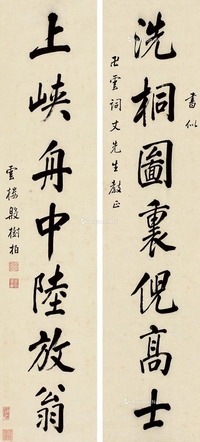 書似
洗桐圖裏倪高士
雲詞丈先生教正
上峽舟中陸放翁
雲樓殷樹柏